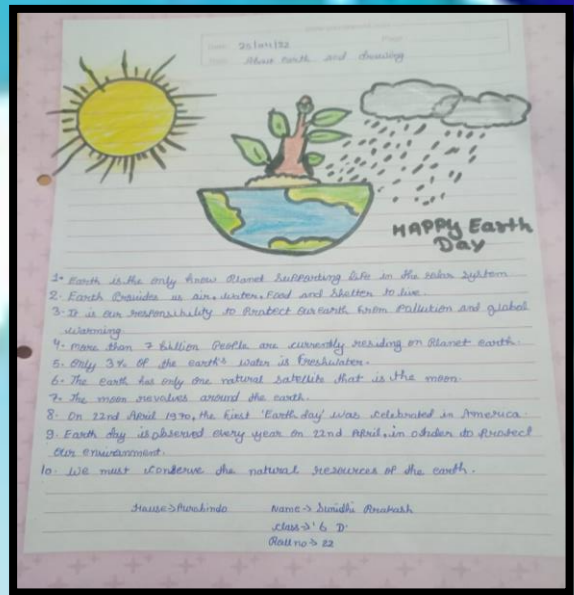 Date: 25/04/22
Page:
About earth and drawing
HAPPY Earth
Day
1. Earth is the only know Planet Supporting life in the solar system
2. Earth Provides us air, water, Food and Shelter to live.
3. It is our responsibility to Protect our earth from Pollution and global
warming.
4. more than 7 billion People are currently residing on Planet earth.
5. Only 3% of the earth's water is Freshwater.
6. The earth has only one natural satellite that is the moon.
7. The moon revolves around the earth.
8. On 22nd April 1970, the first 'Earth day' was celebrated in America.
9. Earth day is observed every year on 22nd April, in order to Protect
our environment.
10. we must conserve the natural resources of the earth.
House → Name → Sunidhi Prakash
Class → 6 D
Roll no → 22